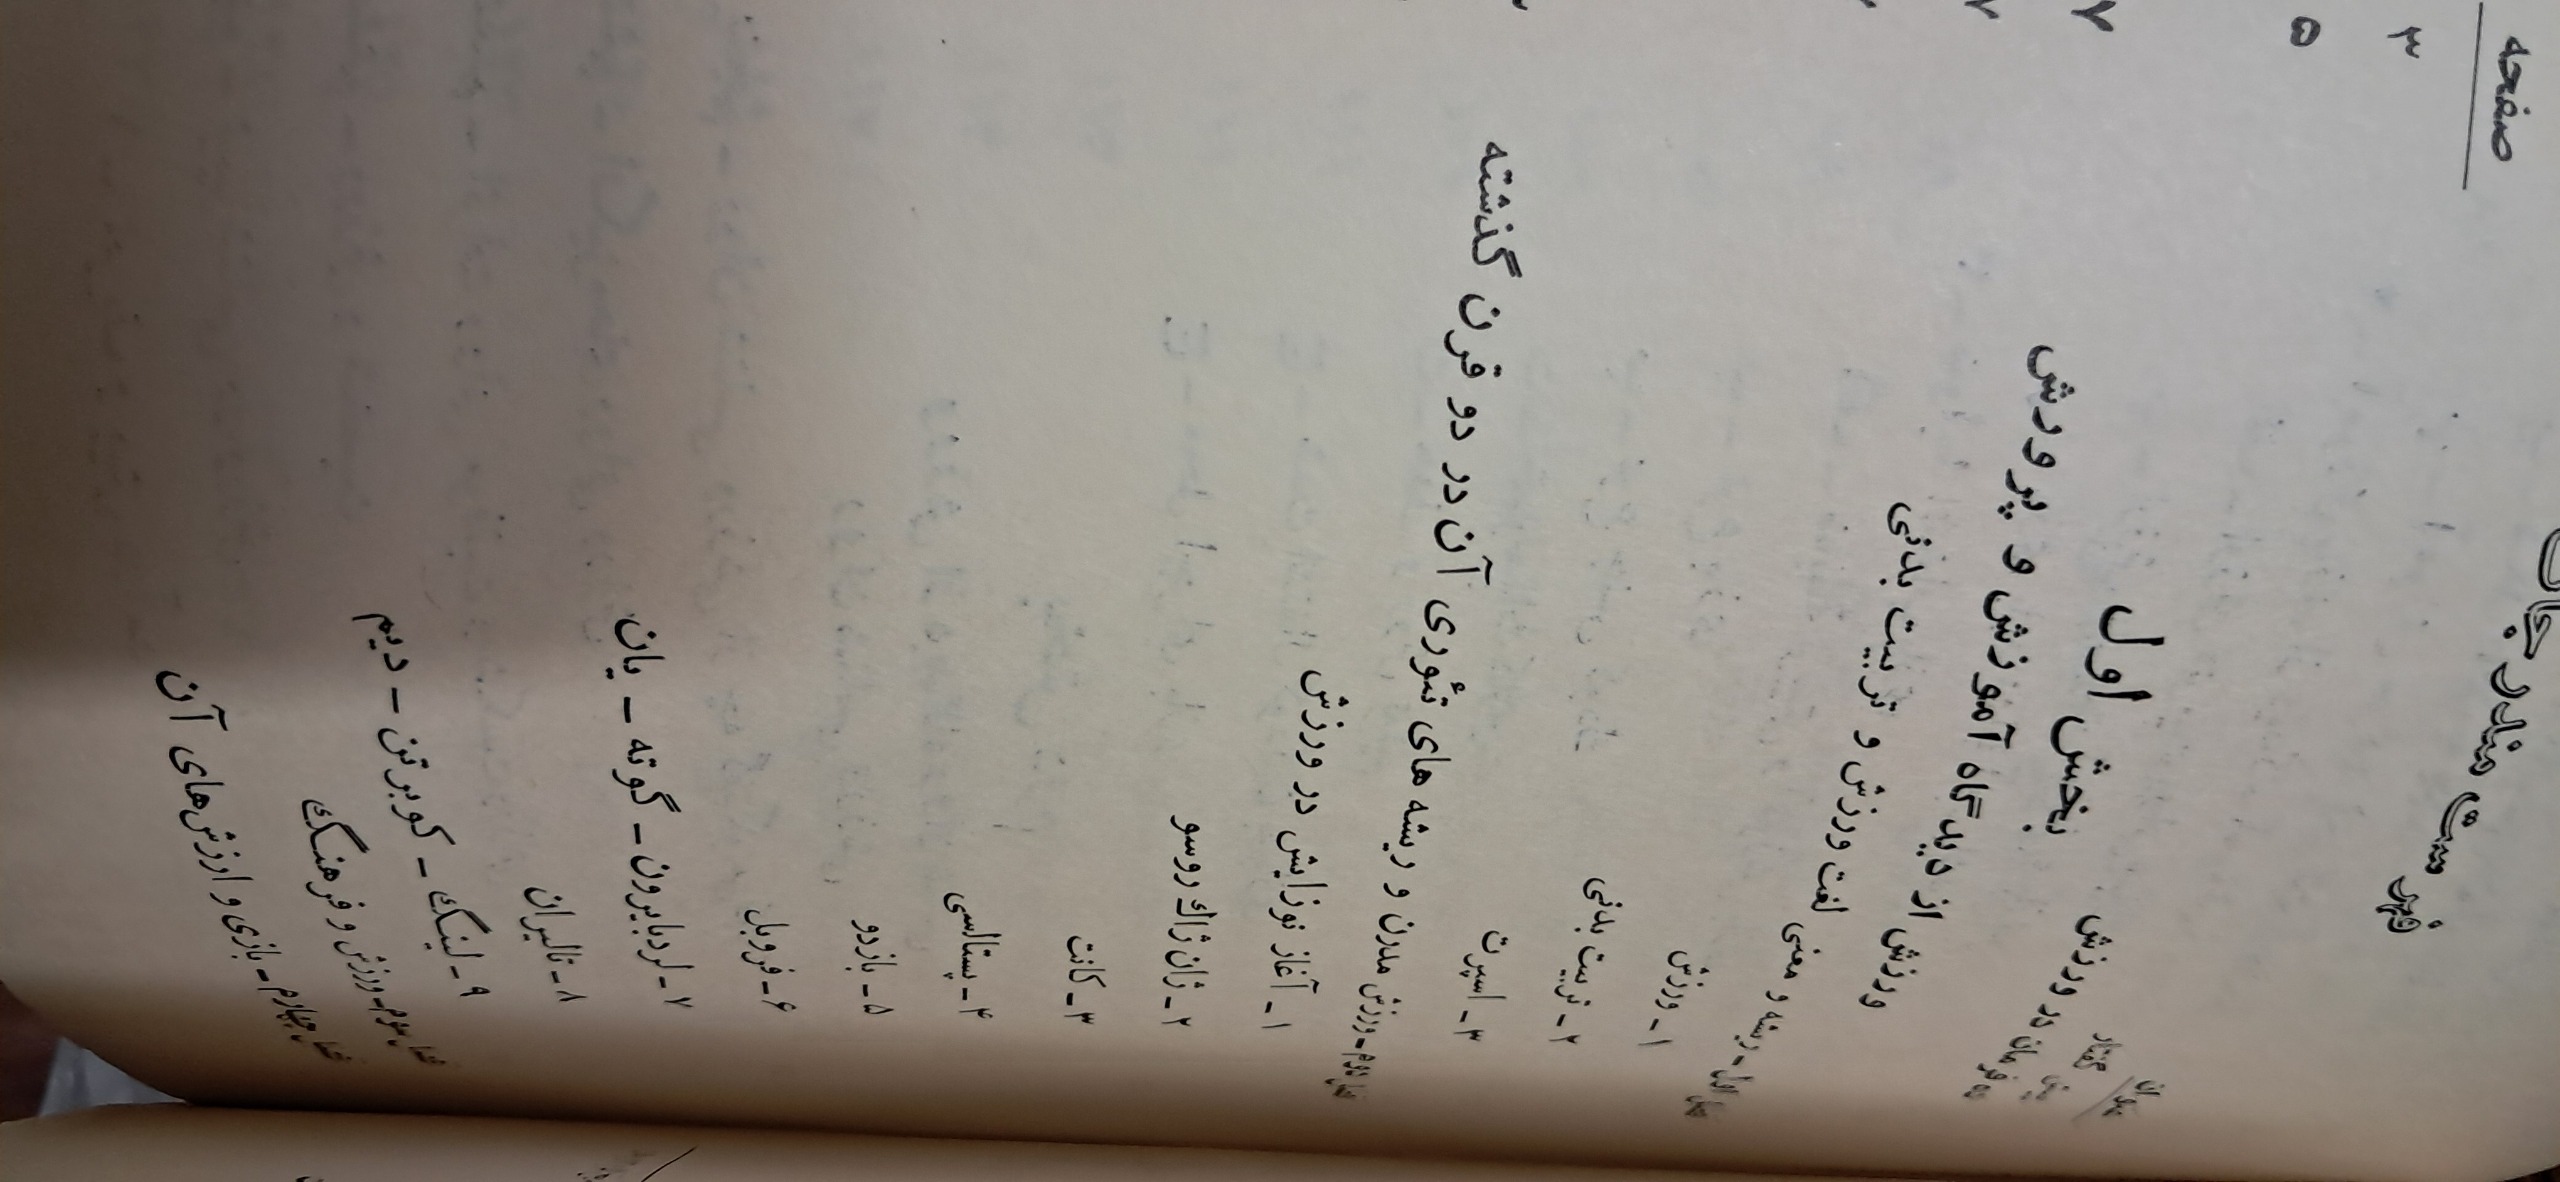 فهرست مندرجات
صفحه
عنوان
پیش گفتار ۳
نه فرمان در ورزش ۵
بخش اول
ورزش از دیدگاه آموزش و پرورش ۷
فصل اول - ریشه و معنی لغت ورزش و تربیت بدنی ۷
۱ - ورزش
۲ - تربیت بدنی
۳ - اسپرت
فصل دوم - ورزش مدرن و ریشه های تئوری آن در دو قرن گذشته
۱ - آغاز نوزایش در ورزش
۲ - ژان ژاك روسو
۳ - کانت
۴ - پستالسی
۵ - بازدو
۶ - فروبل
۷ - لردبایرون - گوته - یان
۸ - تالیران
۹ - لینگ - کوبرتن - دیم
فصل سوم - ورزش و فرهنگ
فصل چهارم - بازی و ارزش‌های آن